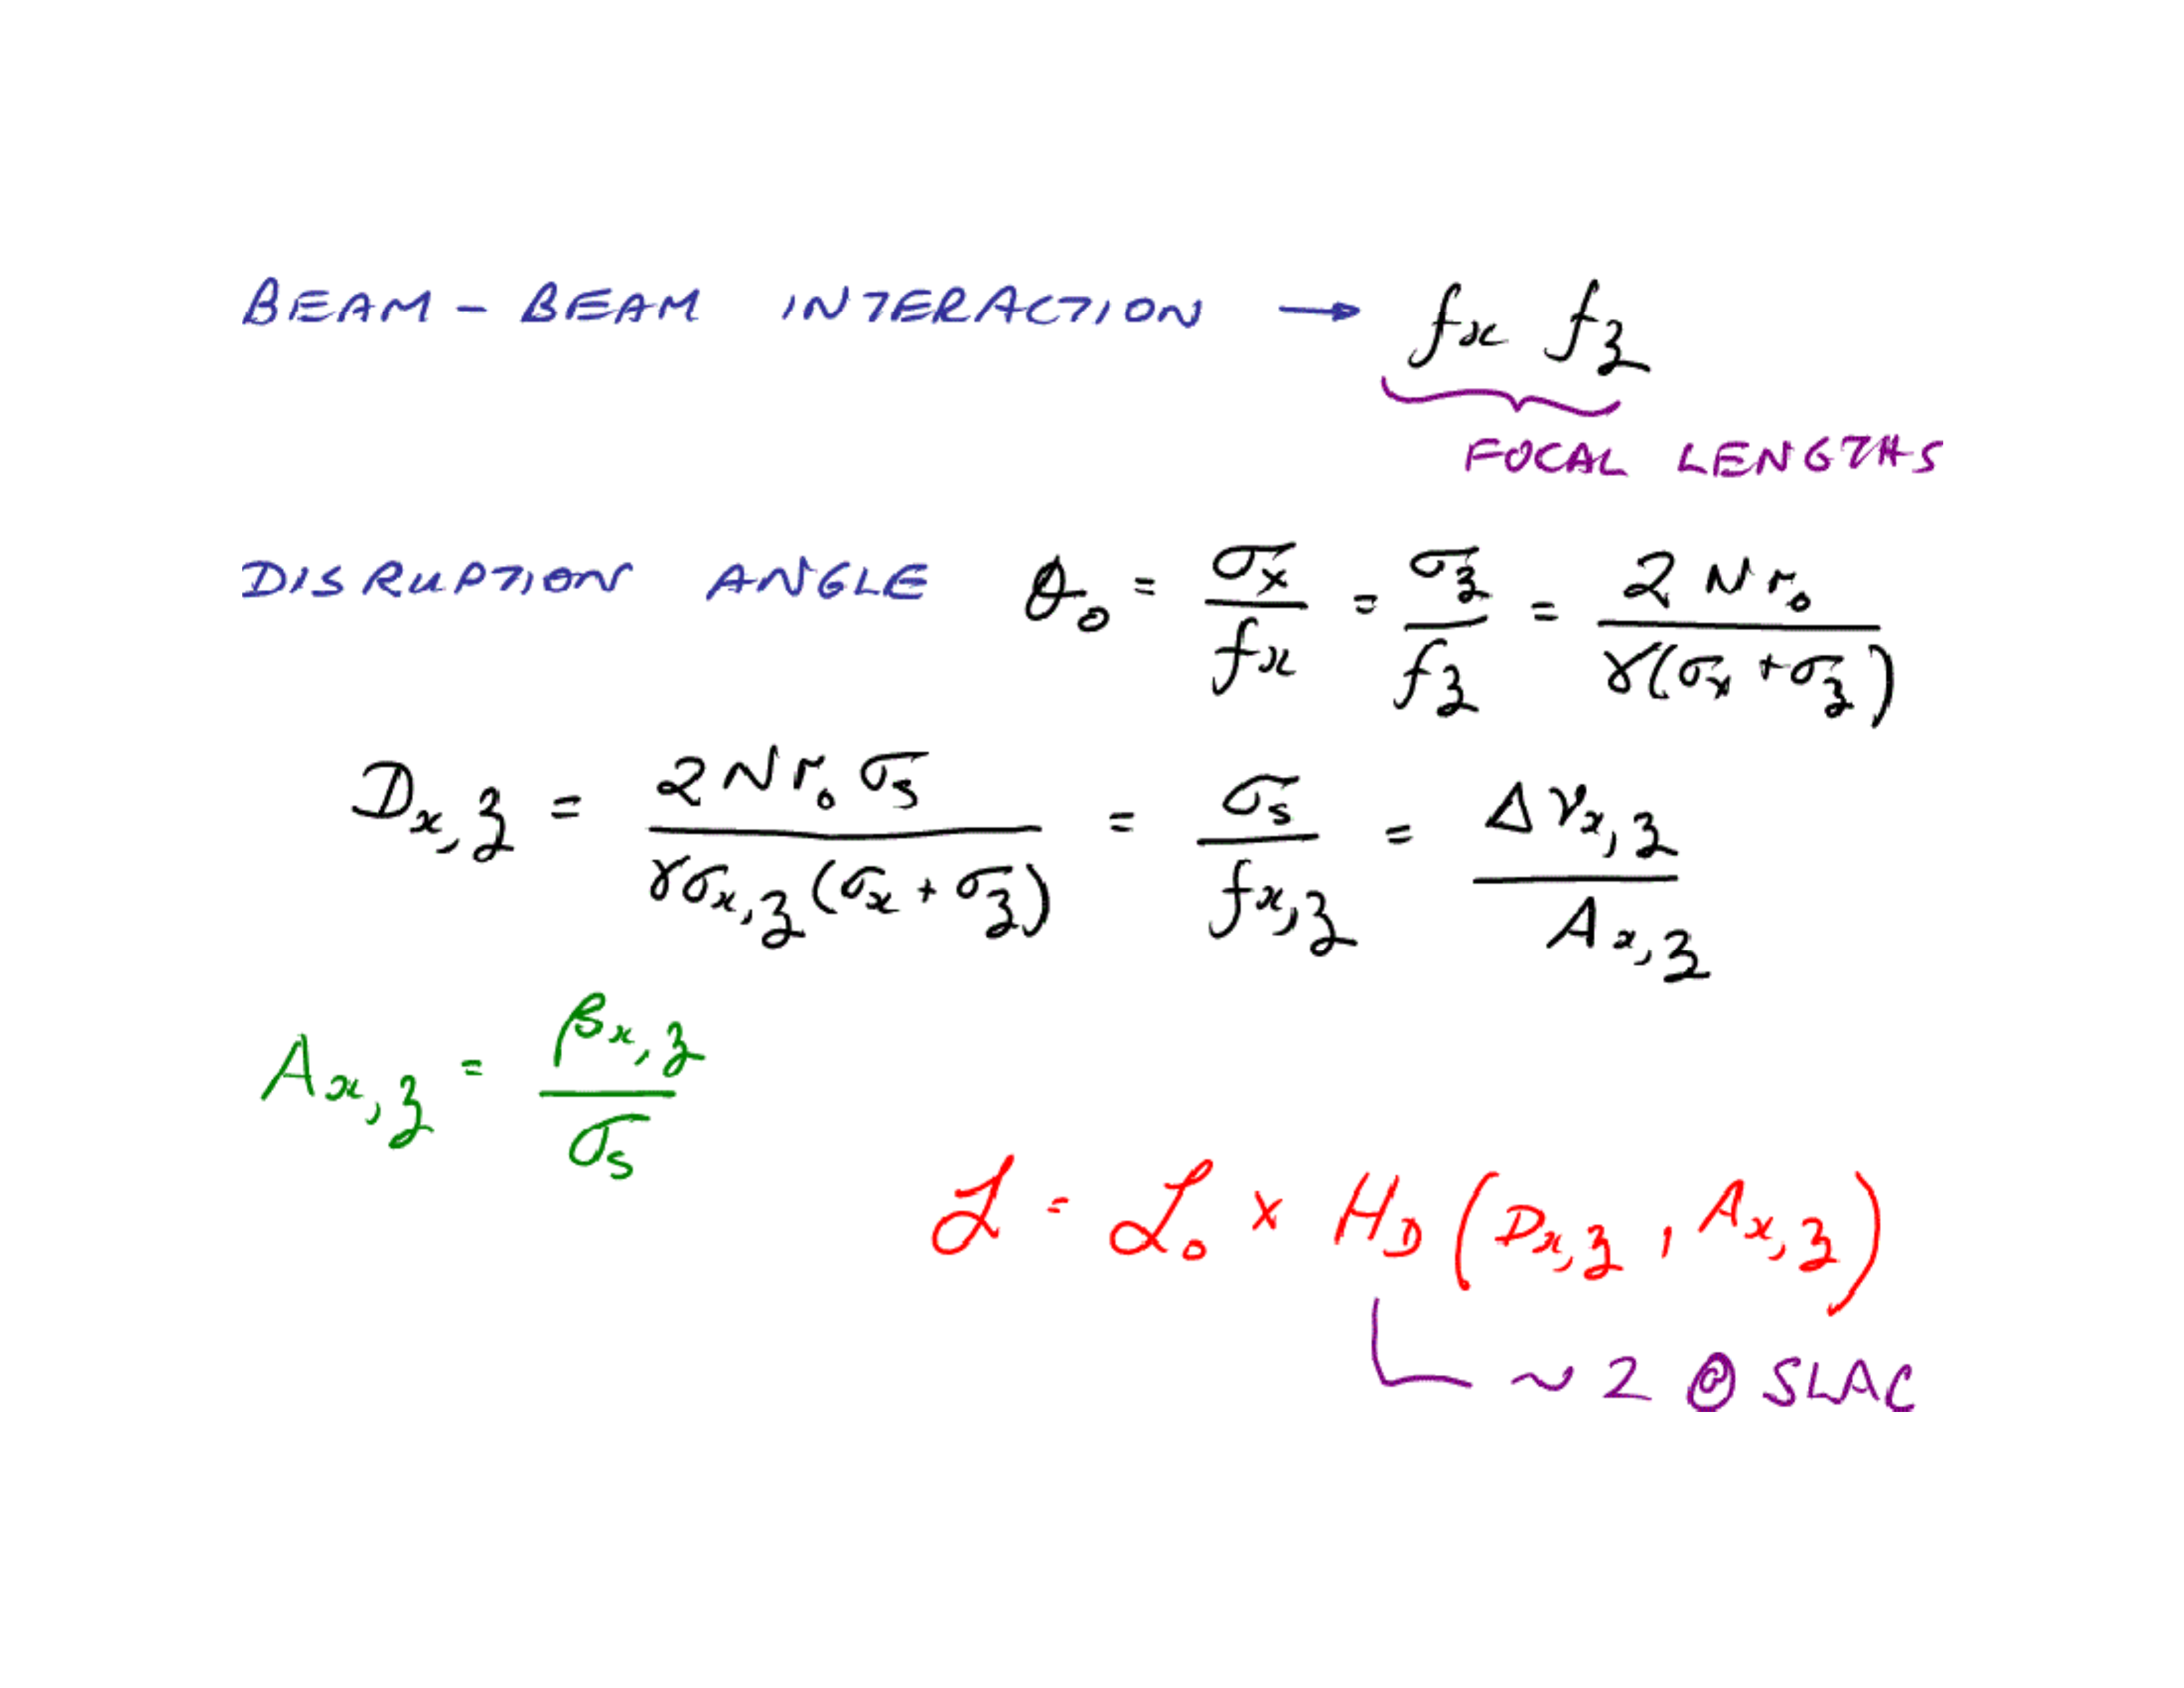 BEAM - BEAM INTERACTION → fx fz
FOCAL LENGTHS
DISRUPTION ANGLE θ₀ = σx / fx = σz / fz = 2 N r₀ / γ(σx + σz)
Dx,z = 2 N r₀ σs / γσx,z (σx + σz) = σs / fx,z = Δνx,z / Ax,z
Ax,z = βx,z / σs
ℒ = ℒ₀ × HD (Dx,z , Ax,z)
~ 2 @ SLAC